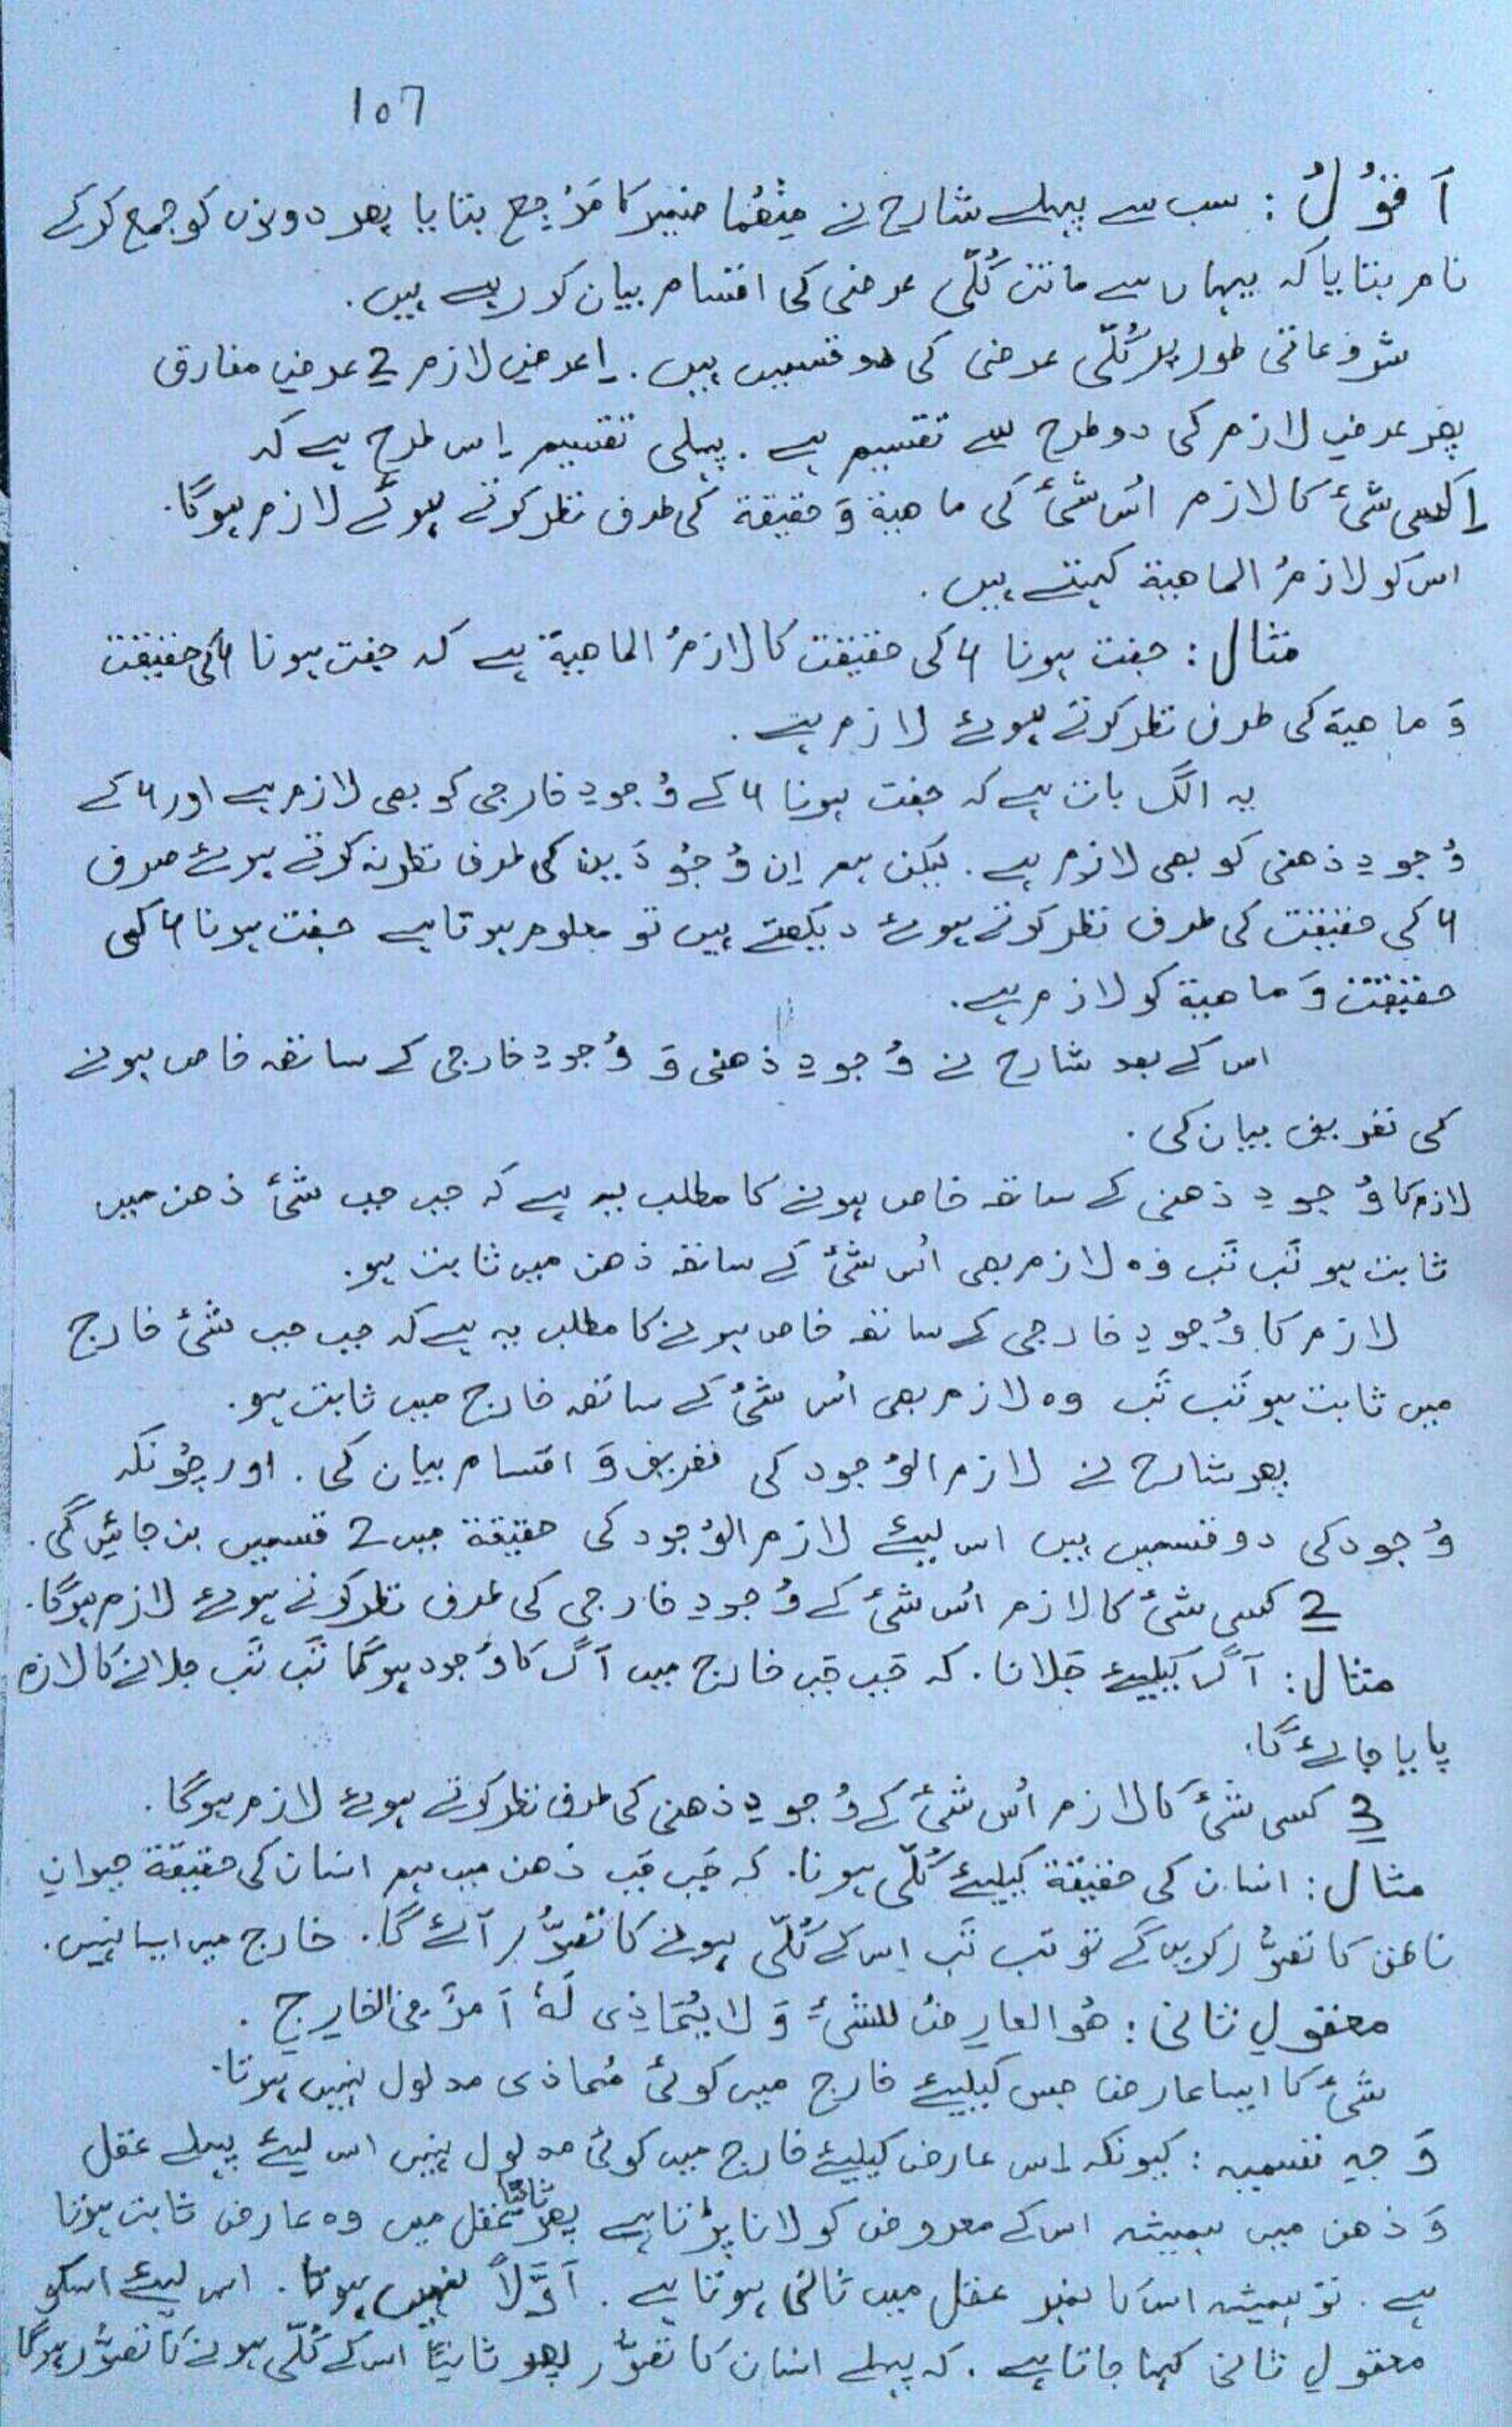 107
اَقُوْلُ : سب سے پہلے شارح نے مِنْھُمَا ضمیر کا مَرْجِع بتایا پھر دونوں کو جمع کر کے
نام بتایا کہ یہاں سے ماتن کُلّی عرضی کی اقسام بیان کر رہے ہیں .
شروعاتی طور پر کُلّی عرضی کی دو قسمیں ہیں . 1 عرضِ لازم 2 عرضِ مفارق
پھر عرضِ لازم کی دو طرح سے تقسیم ہے . پہلی تقسیم اِس طرح ہے کہ
1 کسی شئ کا لازم اُس شئ کی ماھیۃ وَ حقیقۃ کی طرف نظر کرتے ہوئے لازم ہوگا .
اس کو لازمُ الماھیۃ کہتے ہیں .
مثال : جفت ہونا 4 کی حقیقت کا لازمُ الماھیۃ ہے کہ جفت ہونا 4 کی حقیقت
وَ ماھیۃ کی طرف نظر کرتے ہوئے لازم ہے .
یہ الگ بات ہے کہ جفت ہونا 4 کے وُجودِ خارجی کو بھی لازم ہے اور 4 کے
وُجودِ ذھنی کو بھی لازم ہے . لیکن ہم اِن وُجُوْدَیین کی طرف نظر نہ کرتے ہوئے صرف
4 کی حقیقت کی طرف نظر کرتے ہوئے دیکھتے ہیں تو معلوم ہوتا ہے جفت ہونا 4 کی
حقیقت وَ ماھیۃ کو لازم ہے .
اس کے بعد شارح نے وُجودِ ذھنی وَ وُجودِ خارجی کے ساتھ خاص ہونے
کی تعریف بیان کی .
لازم کا وُجودِ ذھنی کے ساتھ خاص ہونے کا مطلب یہ ہے کہ جب جب شئ ذھن میں
ثابت ہو تَب تَب وہ لازم بھی اُس شئ کے ساتھ ذھن میں ثابت ہو .
لازم کا وُجودِ خارجی کے ساتھ خاص ہونے کا مطلب یہ ہے کہ جب جب شئ خارج
میں ثابت ہو تَب تَب وہ لازم بھی اُس شئ کے ساتھ خارج میں ثابت ہو .
پھر شارح نے لازم الوُجود کی تعریف وَ اقسام بیان کی . اور چُونکہ
وُجود کی دو قسمیں ہیں اس لیئے لازم الوُجود کی حقیقۃ میں 2 قسمیں بن جائیں گی .
2 کسی شئ کا لازم اُس شئ کے وُجودِ خارجی کی طرف نظر کرتے ہوئے لازم ہوگا .
مثال : آگ کیلیئے جَلانا . کہ جَب جَب خارج میں آگ کا وُجود ہوگا تَب تَب جلانے کا لازم
پایا جائے گا .
3 کسی شئ کا لازم اُس شئ کے وُجودِ ذھنی کی طرف نظر کرتے ہوئے لازم ہوگا .
مثال : انسان کی حقیقۃ کیلیئے کُلّی ہونا . کہ جَب جَب ذھن میں ہم انسان کی حقیقۃ حیوانِ
ناطق کا تصوُّر کریں گے تو تب تَب اِس کے کُلّی ہونے کا تصوُّر آئے گا . خارج میں ایسا نہیں .
معقولِ ثانی : ھُوَ العارِضُ للشئِ وَ لا یُحَاذِی لَہٗ اَمرٌ فِی الخارِجِ .
شئ کا ایسا عارض جس کیلیئے خارج میں کوئی مُحاذی مدلول نہیں ہوتا .
وَجہِ تسمیہ : کیونکہ اِس عارض کیلیئے خارج میں کوئی مدلول نہیں اس لیئے پہلے عقل
وَ ذھن میں ہمیشہ اس کے معروض کو لانا پڑتا ہے پھر ثانیًا عقل میں وہ عارض ثابت ہوتا
ہے . تو ہمیشہ اس کا نمبر عقل میں ثانی ہوتا ہے . اَوَّلاً نہیں ہوتا . اس لیئے اسکو
معقولِ ثانی کہا جاتا ہے . کہ پہلے انسان کا تصوُّر پھر ثانیًا اس کے کُلّی ہونے کا تصوُّر ہوگا